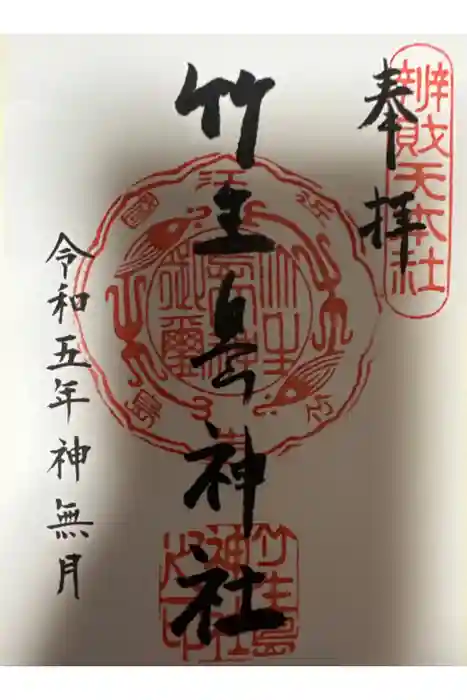 辨財天本社
奉拝
竹生島神社
令和五年神無月
竹生島
神社
之印